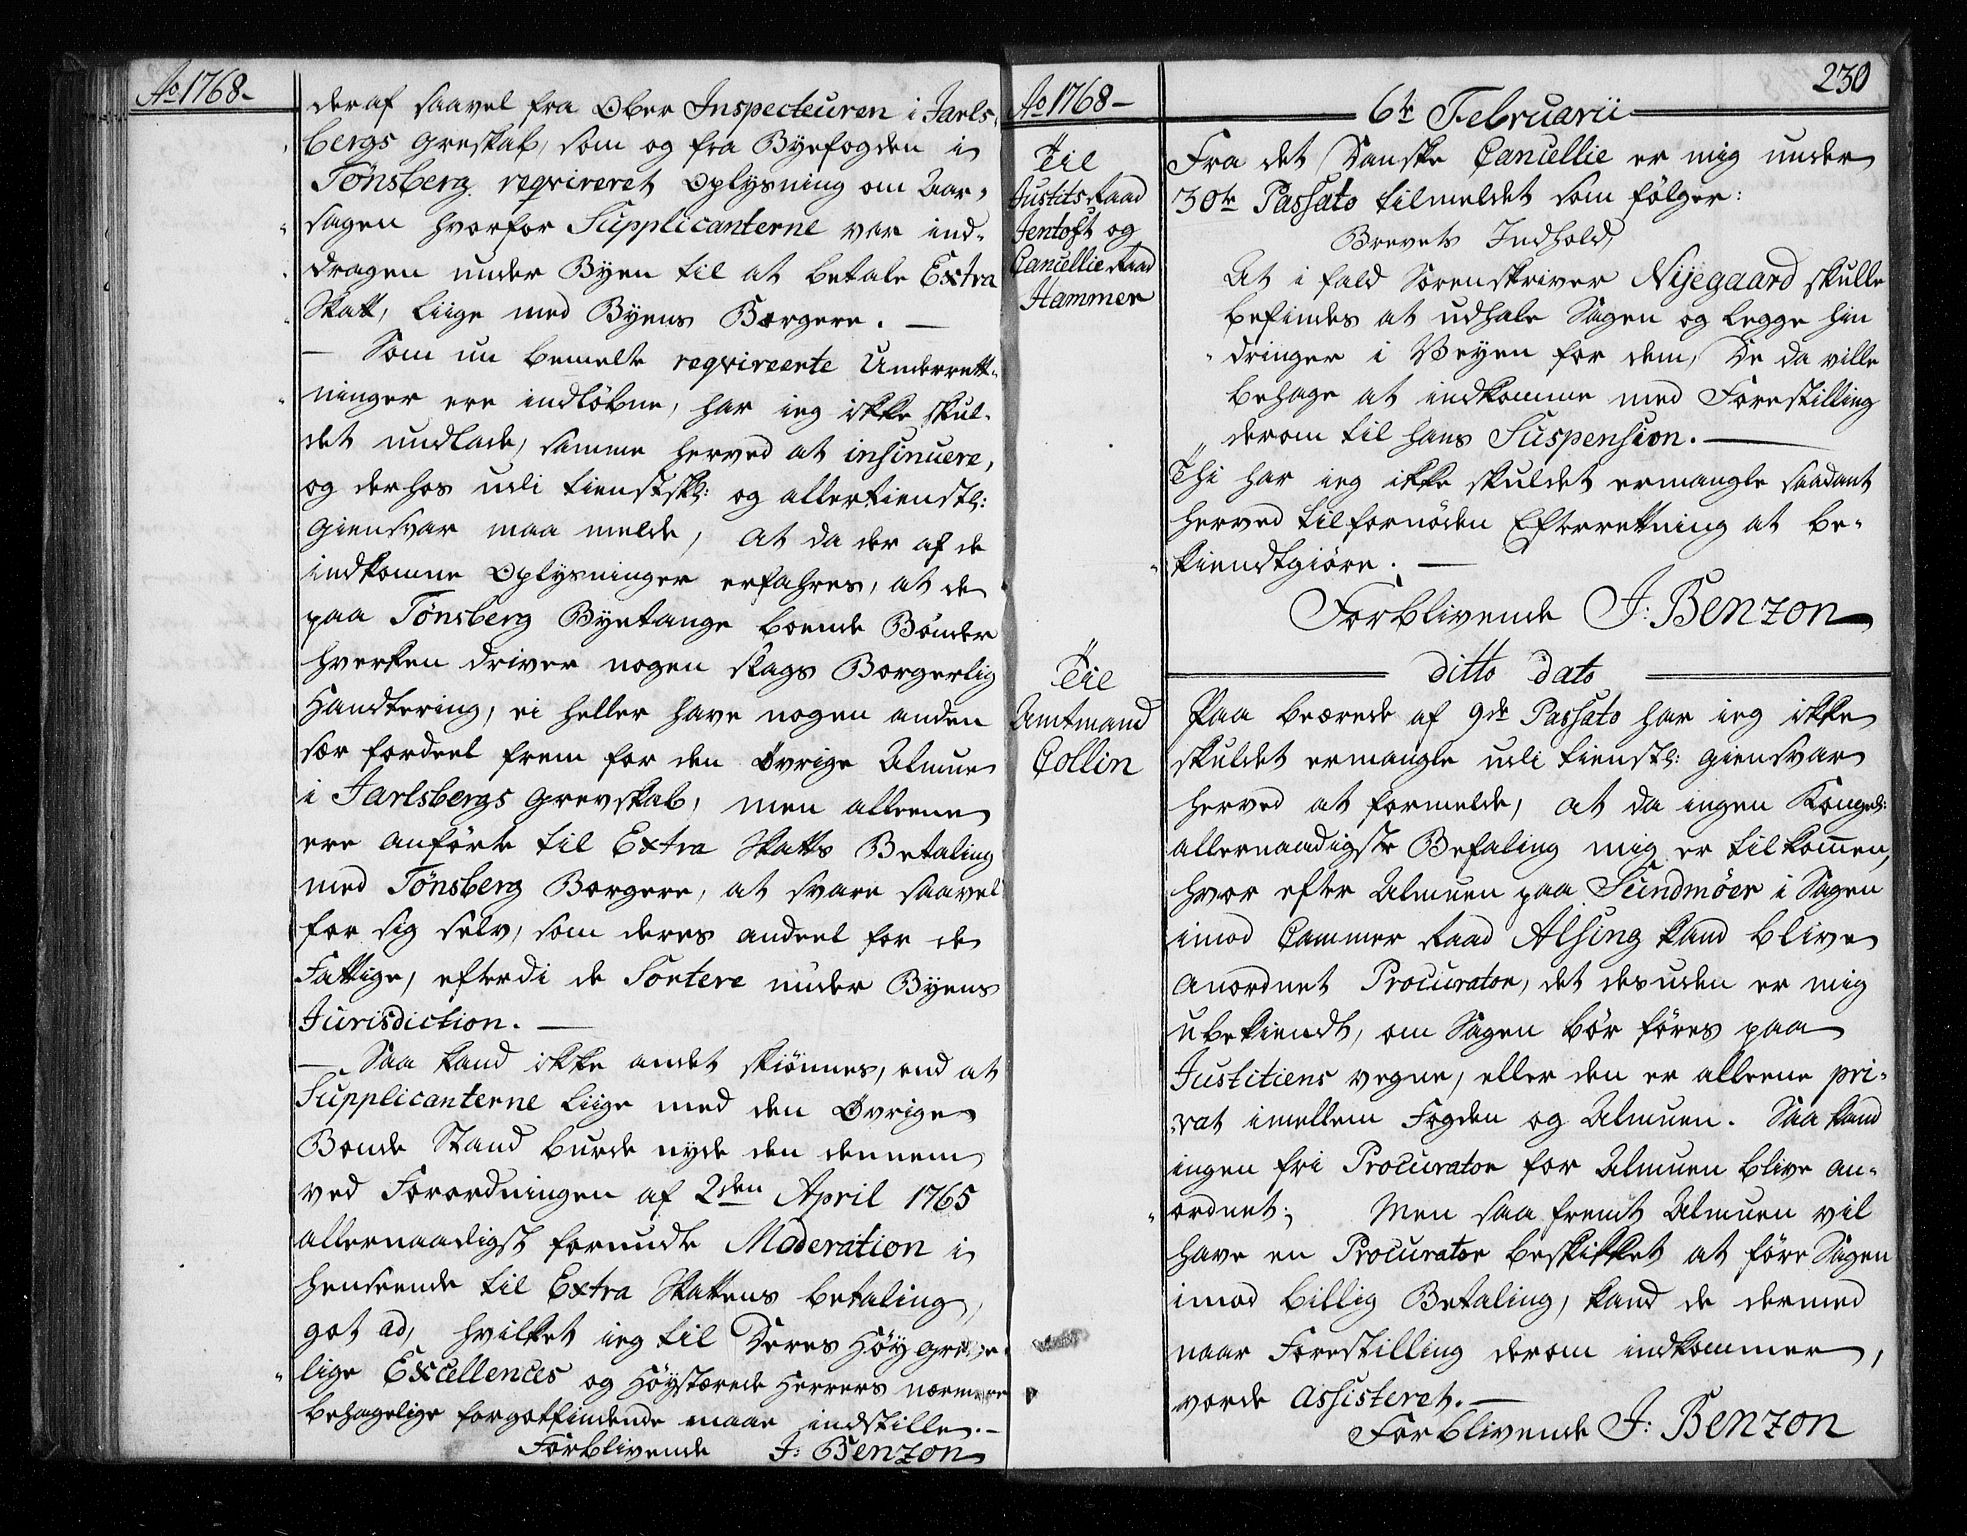 Ao 1768-
deraf saavel fra Ober Inspecteuren i Jarls-
bergs Greskab, som og fra Byefogden i
Tønsberg reqvireret Oplysning om Aar-
sagen hvorfor Supplicanterne var ind-
dragen under Byen til at betale Extra
Skatt, liige med Byens Borgere. —
— Som nu bemelte reqvireerte Underrett-
ninger ere indløbne, har ieg ikke skul-
det undlade, samme herved at insinuere,
og derhos udi tienstskl: og allertienstl:
Giensvar maa melde, at da der af de
indkomne Oplysninger erfahres, at de
paa Tønsberg Byetange boende Bønder
hverken driver nogen slags Borgerlig
Handtering, ei heller have nogen anden
sær fordeel frem for den Øvrige Almue
i Jarlsbergs Grevskab, men alleene
ere anførte til Extra Skatts Betaling
med Tønsberg Borgere, at svare saavel
for sig selv, som deres andeel for de
Fattige, efterdi de Sortere under Byens
Jurisdiction. —
— Saa kand ikke andet skiønnes, end at
Supplicanterne liige med den Øvrige
Bonde Stand burde nyde den dennem
ved Forordningen af 2den April 1765
allernaadigst forundte Moderation i
henseende til Extra Skattens betaling,
got ad, hvilket ieg til Deres Høy Greve-
lige Excellences og Høystærede Herrers nærmere
behagelige forgotfindende maae indstille. -
Forblivende J: Benzon
230
Ao 1768 —
6te Februarii
Til
Justits Raad
Jentoft og
Cancellie Raad
Hammer
Fra det Danske Cancellie er mig under
30te Passato tilmeldet som følger:
Brevets Indhold,
At i fald Sorenskriver Nyegaard skulle
befindes at udhale Sagen og legge hin
dringer i Veyen for dem, De da ville
behage at indkomme med Forestilling
derom til hans Suspension. —
Thi har ieg ikke skuldet ermangle saadant
herved til fornøden Efterretning at be-
kiendtgiøre. —
Forblivende J: Benzon
ditto dato
Til
Amtmand
Collin
Paa beærede af 9de Passato har ieg ikke
skuldet ermangle udi tienstl: giensvar
herved at formelde, at da ingen Kongel:
allernaadigste Befaling mig er tilkommen,
hvor efter Almuen paa Sundmøer i Sagen
imod Cammer Raad Alsing kand blive
anordnet Procurator, det desuden er mig
ubekiendt, om Sagen bør føres paa
Justitiens vegne, eller den er alleene pri-
vat imellem Fogden og Almuen. Saa kand
ingen fri Procurator for Almuen blive an-
ordnet; Men saa fremt Almuen vil
have en Procurator beskikket at føre Sagen
imod billig Betaling, kand de dermed
naar Forestilling derom indkommer,
vorde assisteret. —
Forblivende J: Benzon